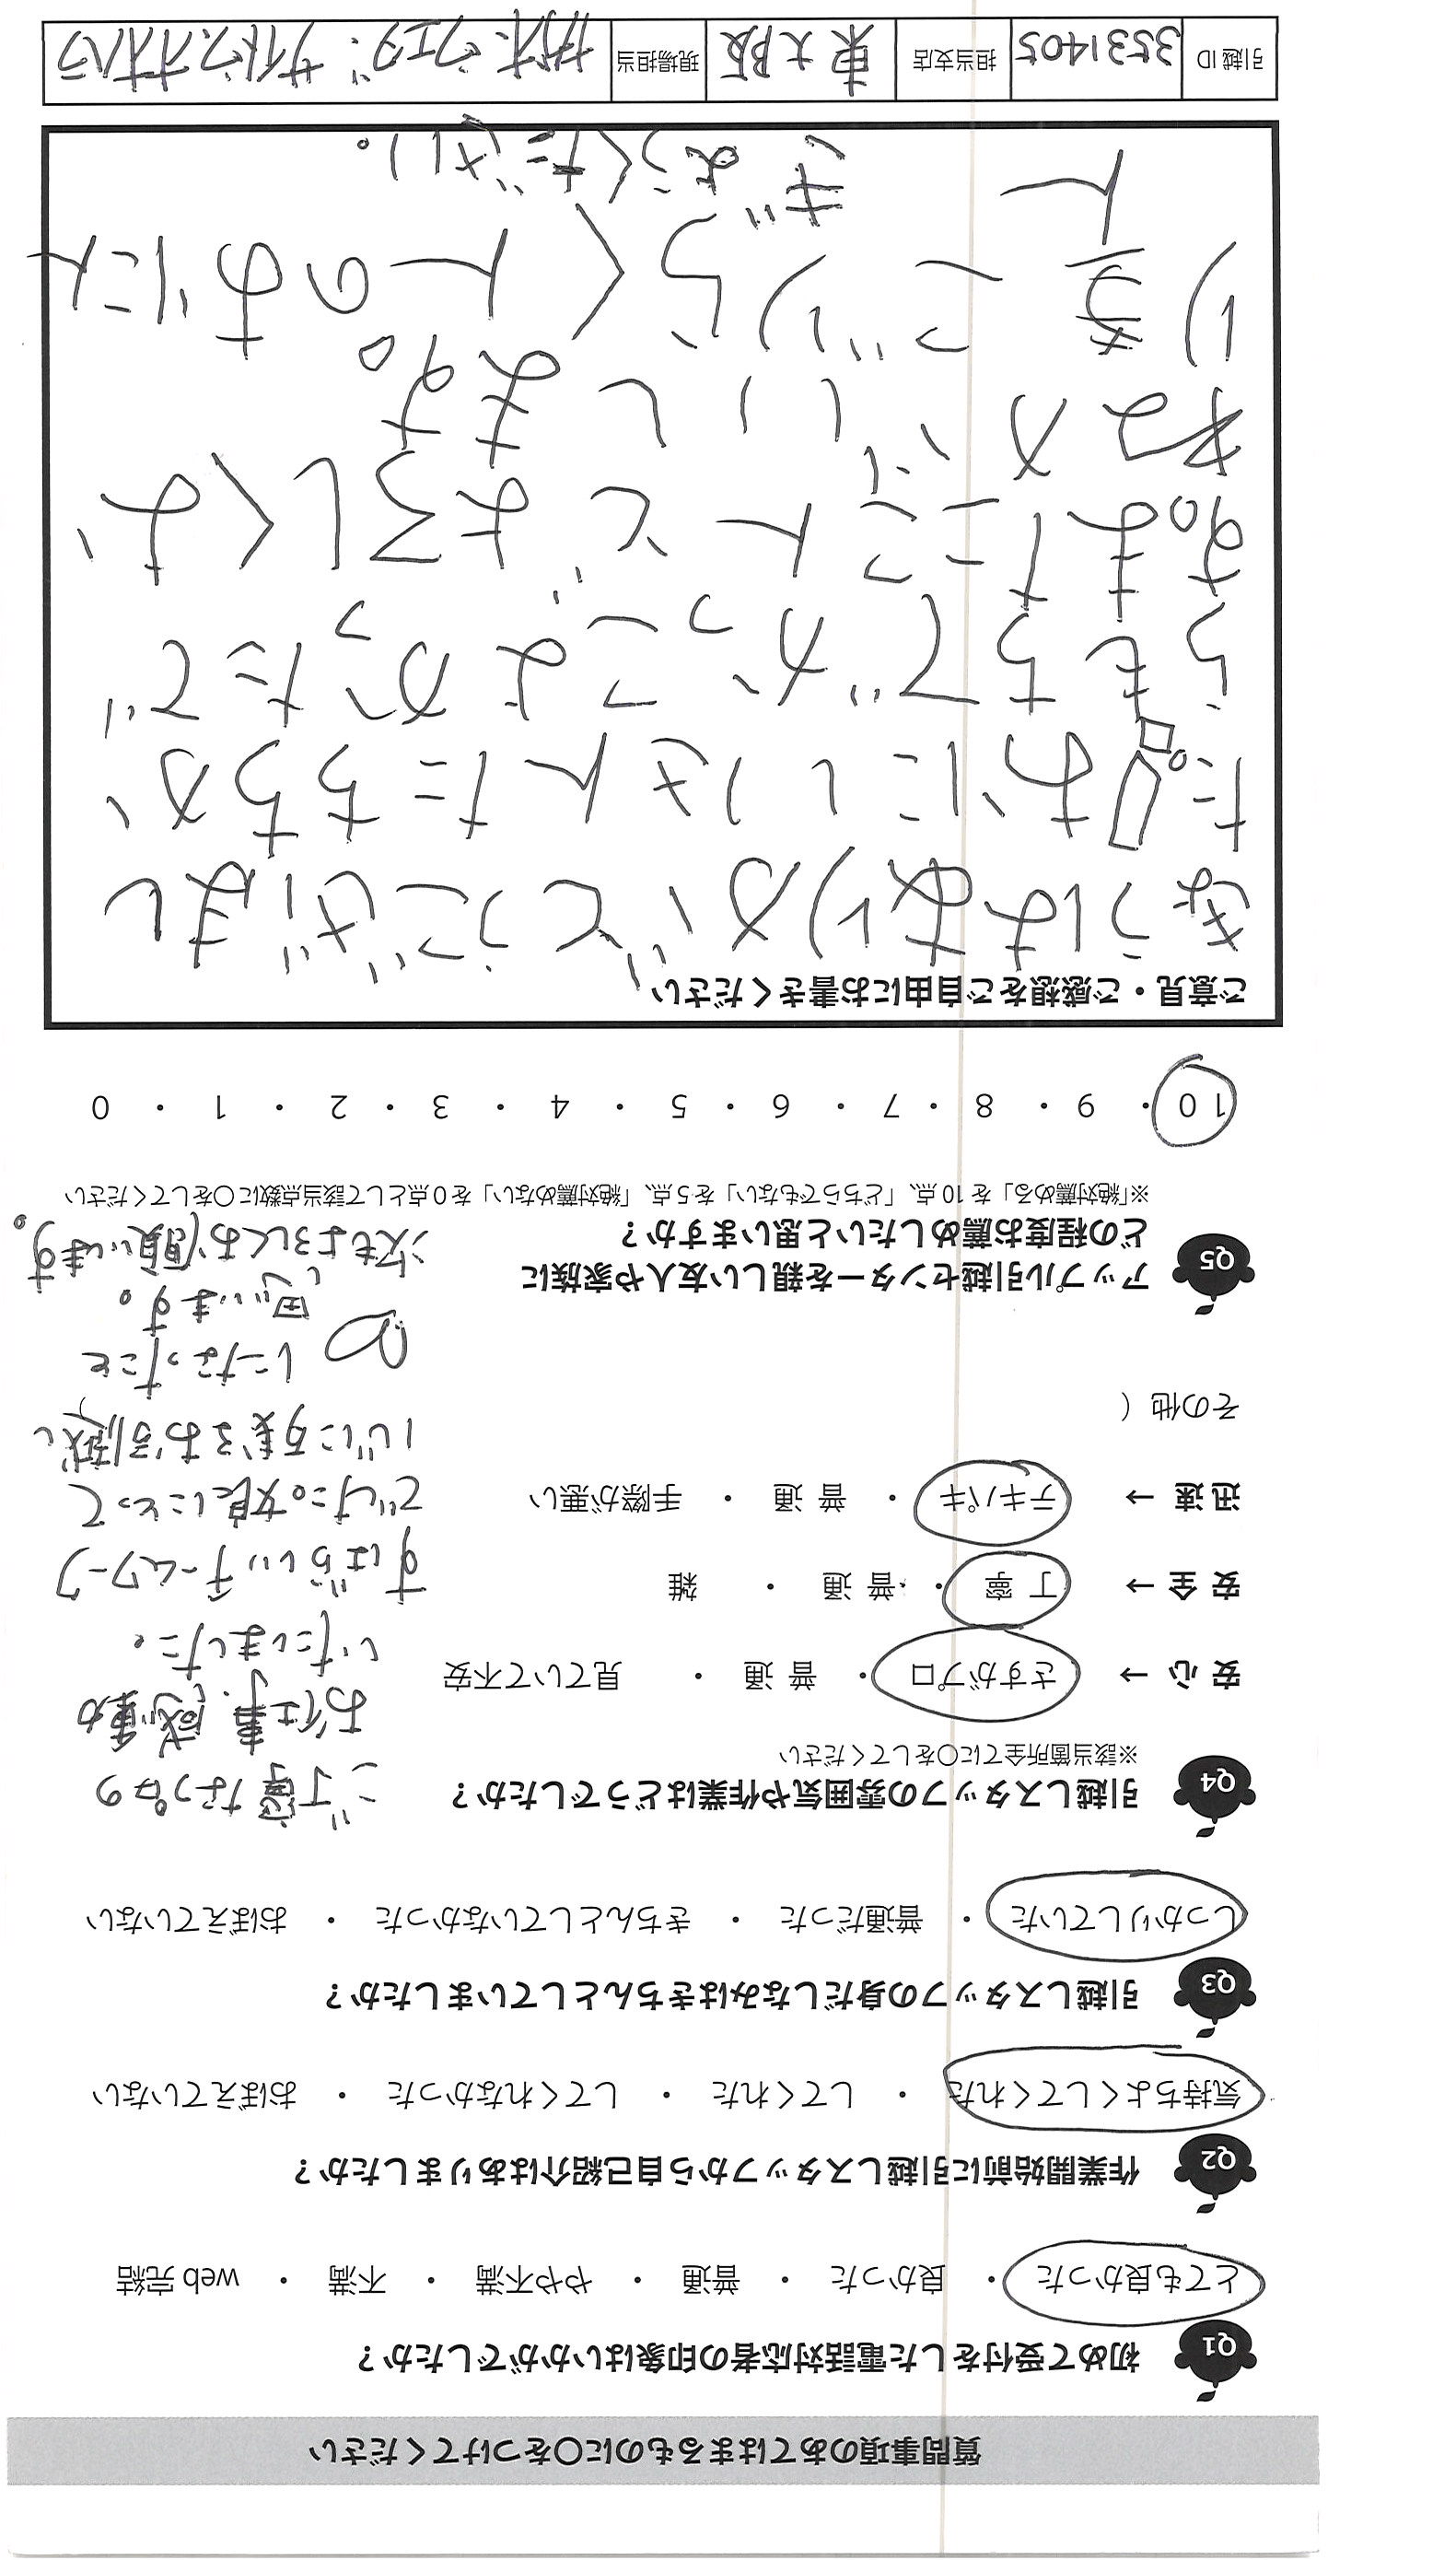 質問事項のあてはまるものに○をつけてください
Q1 初めて受付をした電話対応者の印象はいかがでしたか？
とても良かった ・ 良かった ・ 普通 ・ やや不満 ・ 不満 ・ web完結
Q2 作業開始前に引越しスタッフから自己紹介はありましたか？
気持ちよくしてくれた ・ してくれた ・ してくれなかった ・ おぼえていない
Q3 引越しスタッフの身だしなみはきちんとしていましたか？
しっかりしていた ・ 普通だった ・ きちんとしていなかった ・ おぼえていない
Q4 引越しスタッフの雰囲気や作業はどうでしたか？
※該当箇所全てに○をしてください
安心 → さすがプロ ・ 普通 ・ 見ていて不安
安全 → 丁寧 ・ 普通 ・ 雑
迅速 → テキパキ ・ 普通 ・ 手際が悪い
その他（
ご丁寧なプロの
お仕事、感動
いたしました。
すばらしいチームワーク
でした。娘にとって
心に残るお引越し
になったこと
思います。
次もよろしくお願います。
Q5 アップル引越センターを親しい友人や家族に
どの程度お薦めしたいと思いますか？
※「絶対薦める」を10点、「どちらでもない」を5点、「絶対薦めない」を0点として該当点数に○をしてください
10 ・ 9 ・ 8 ・ 7 ・ 6 ・ 5 ・ 4 ・ 3 ・ 2 ・ 1 ・ 0
ご意見・ご感想をご自由にお書きください
きょうはありがとうございまし
た。おにいさんたちちか
らもちでかっこよかったで
す。またこんどよろしくお
ねがいします。
ください。
引越ID 3531405 担当支店 東大阪 現場担当 ウエダ・サイトウ・オオハラ